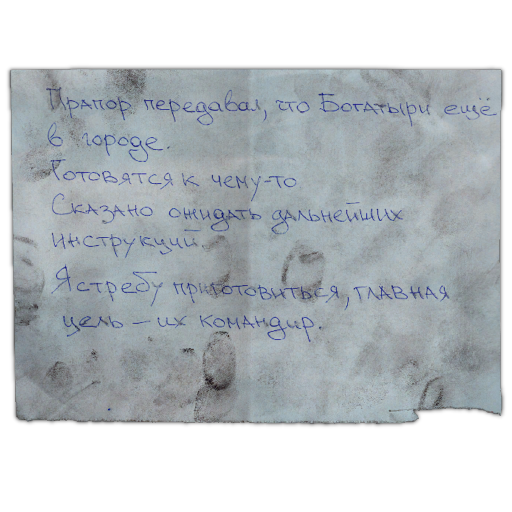 Прапор передавал, что Богатыри ещё
в городе.
Готовятся к чему-то
Сказано ожидать дальнейших
инструкций.
Ястребу приготовиться, главная
цель – их командир.